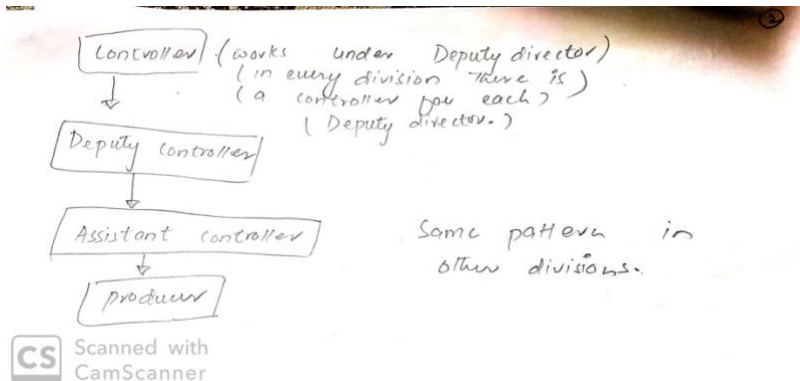 2
Controller (works under Deputy director)
(in every division there is)
(a controller for each)
(Deputy director.)
Deputy controller
Assistant controller
Same pattern in
other divisions.
producer
CS Scanned with
CamScanner